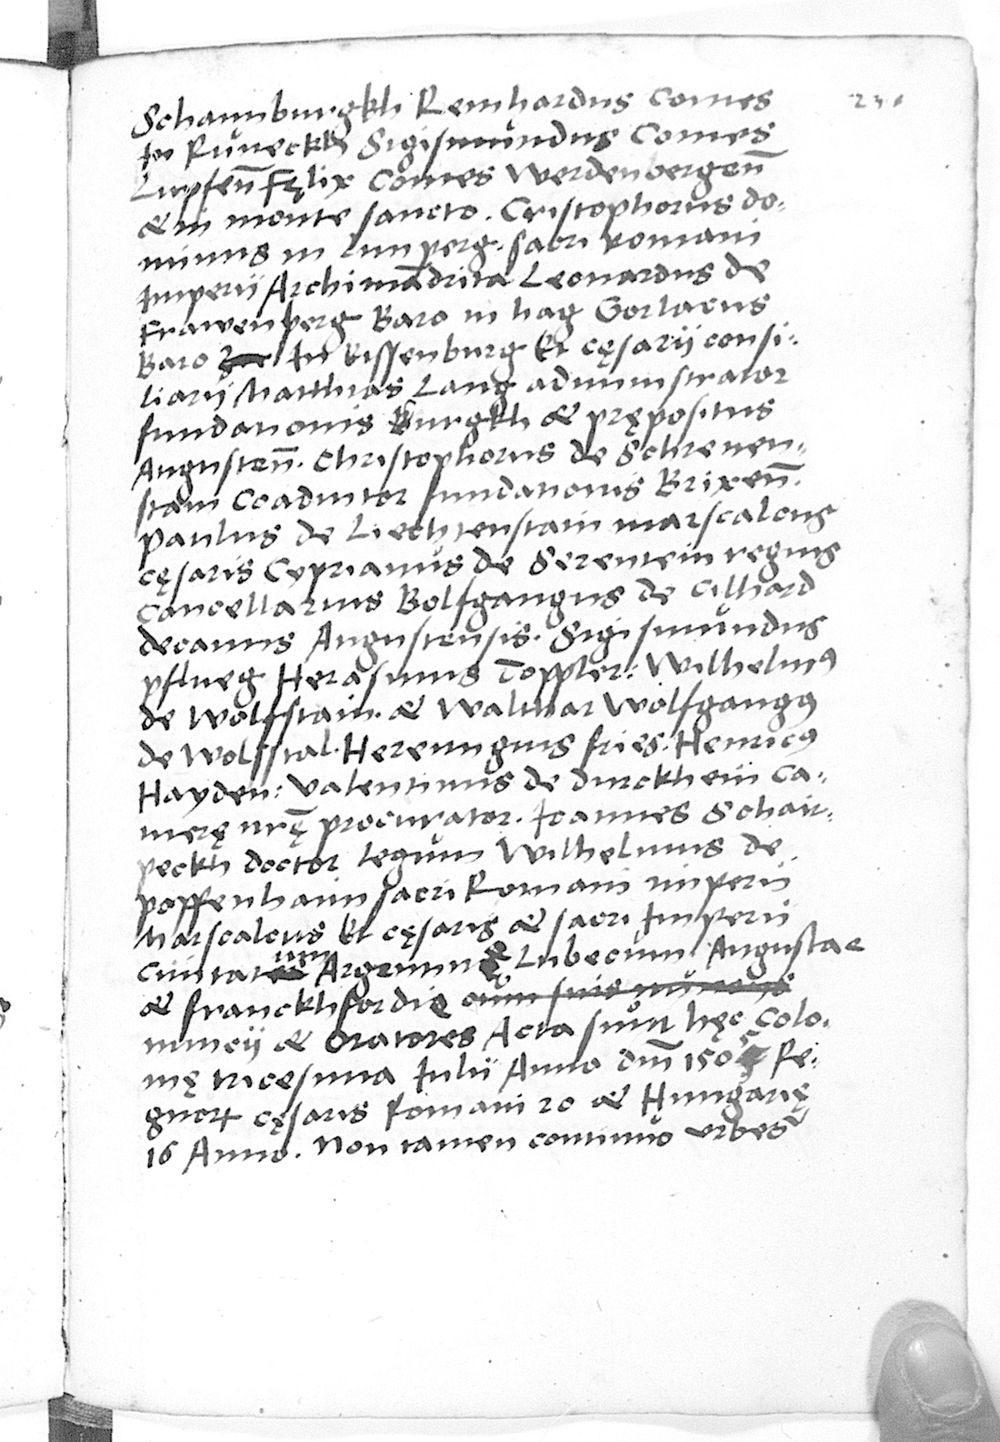 Schaunburgkh Reinhardus Comes
In Růneckh Sigismůndus Comes
Lupfeñ Fęlix Comes Werdenbergeñ
& in monte sancto. Cristophorus do-
minus in Limperg. sacri romani
Imperii Archimādrita Leonardus de
Frawenperg Baro in hag Gorlacus
Baro In Eissenburg Et cęsarij consi-
liarij Matthias Lang administrator
fundationis Gurgkh & prępositus
Augusteñ. Christophorus de Schreuen-
stain Coadiutor fundationis Brixeñ.
Paulus de Liechtenstain marscalcus
cęsaris Cyprianus de Serentein regius
Cancellarius Bolfgangus de Cilhard
decanus Augustensis. Sigismůndus
pflueg Herasmus Toppler: Wilhelmꝰ
de Wolfstain. & Waltmar Wolfgangꝰ
de Wolfstal. Herenngius fries. Henricꝰ
Hayden: Valentinus de dürckhein Ca-
merę nrę̄ procurator. Ioannes Schair-
peckh doctor legům Wilhelmus de
poppenhaim sacri Romani imperii
Marscalcus Et cęsaris & sacri Imperii
Ciuitatum Argentinę Lubecum Augustae
& franckhfordię cům suis nůncys
nuncij & Oratores Acta sůnt hęc Colo-
nię tricesima Iulii Anno dm̄ 1505 Re-
gnorꝝ cęsaris Romani 20 & Hungarię
16 Anno. Non tamen continuo urbes